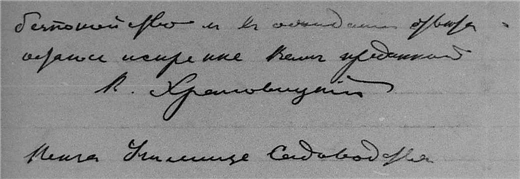 беспокойство и в ожидании ответа
остаюсь искренне Вам преданный
К. Храповицкий
Пенза Училище Садоводства